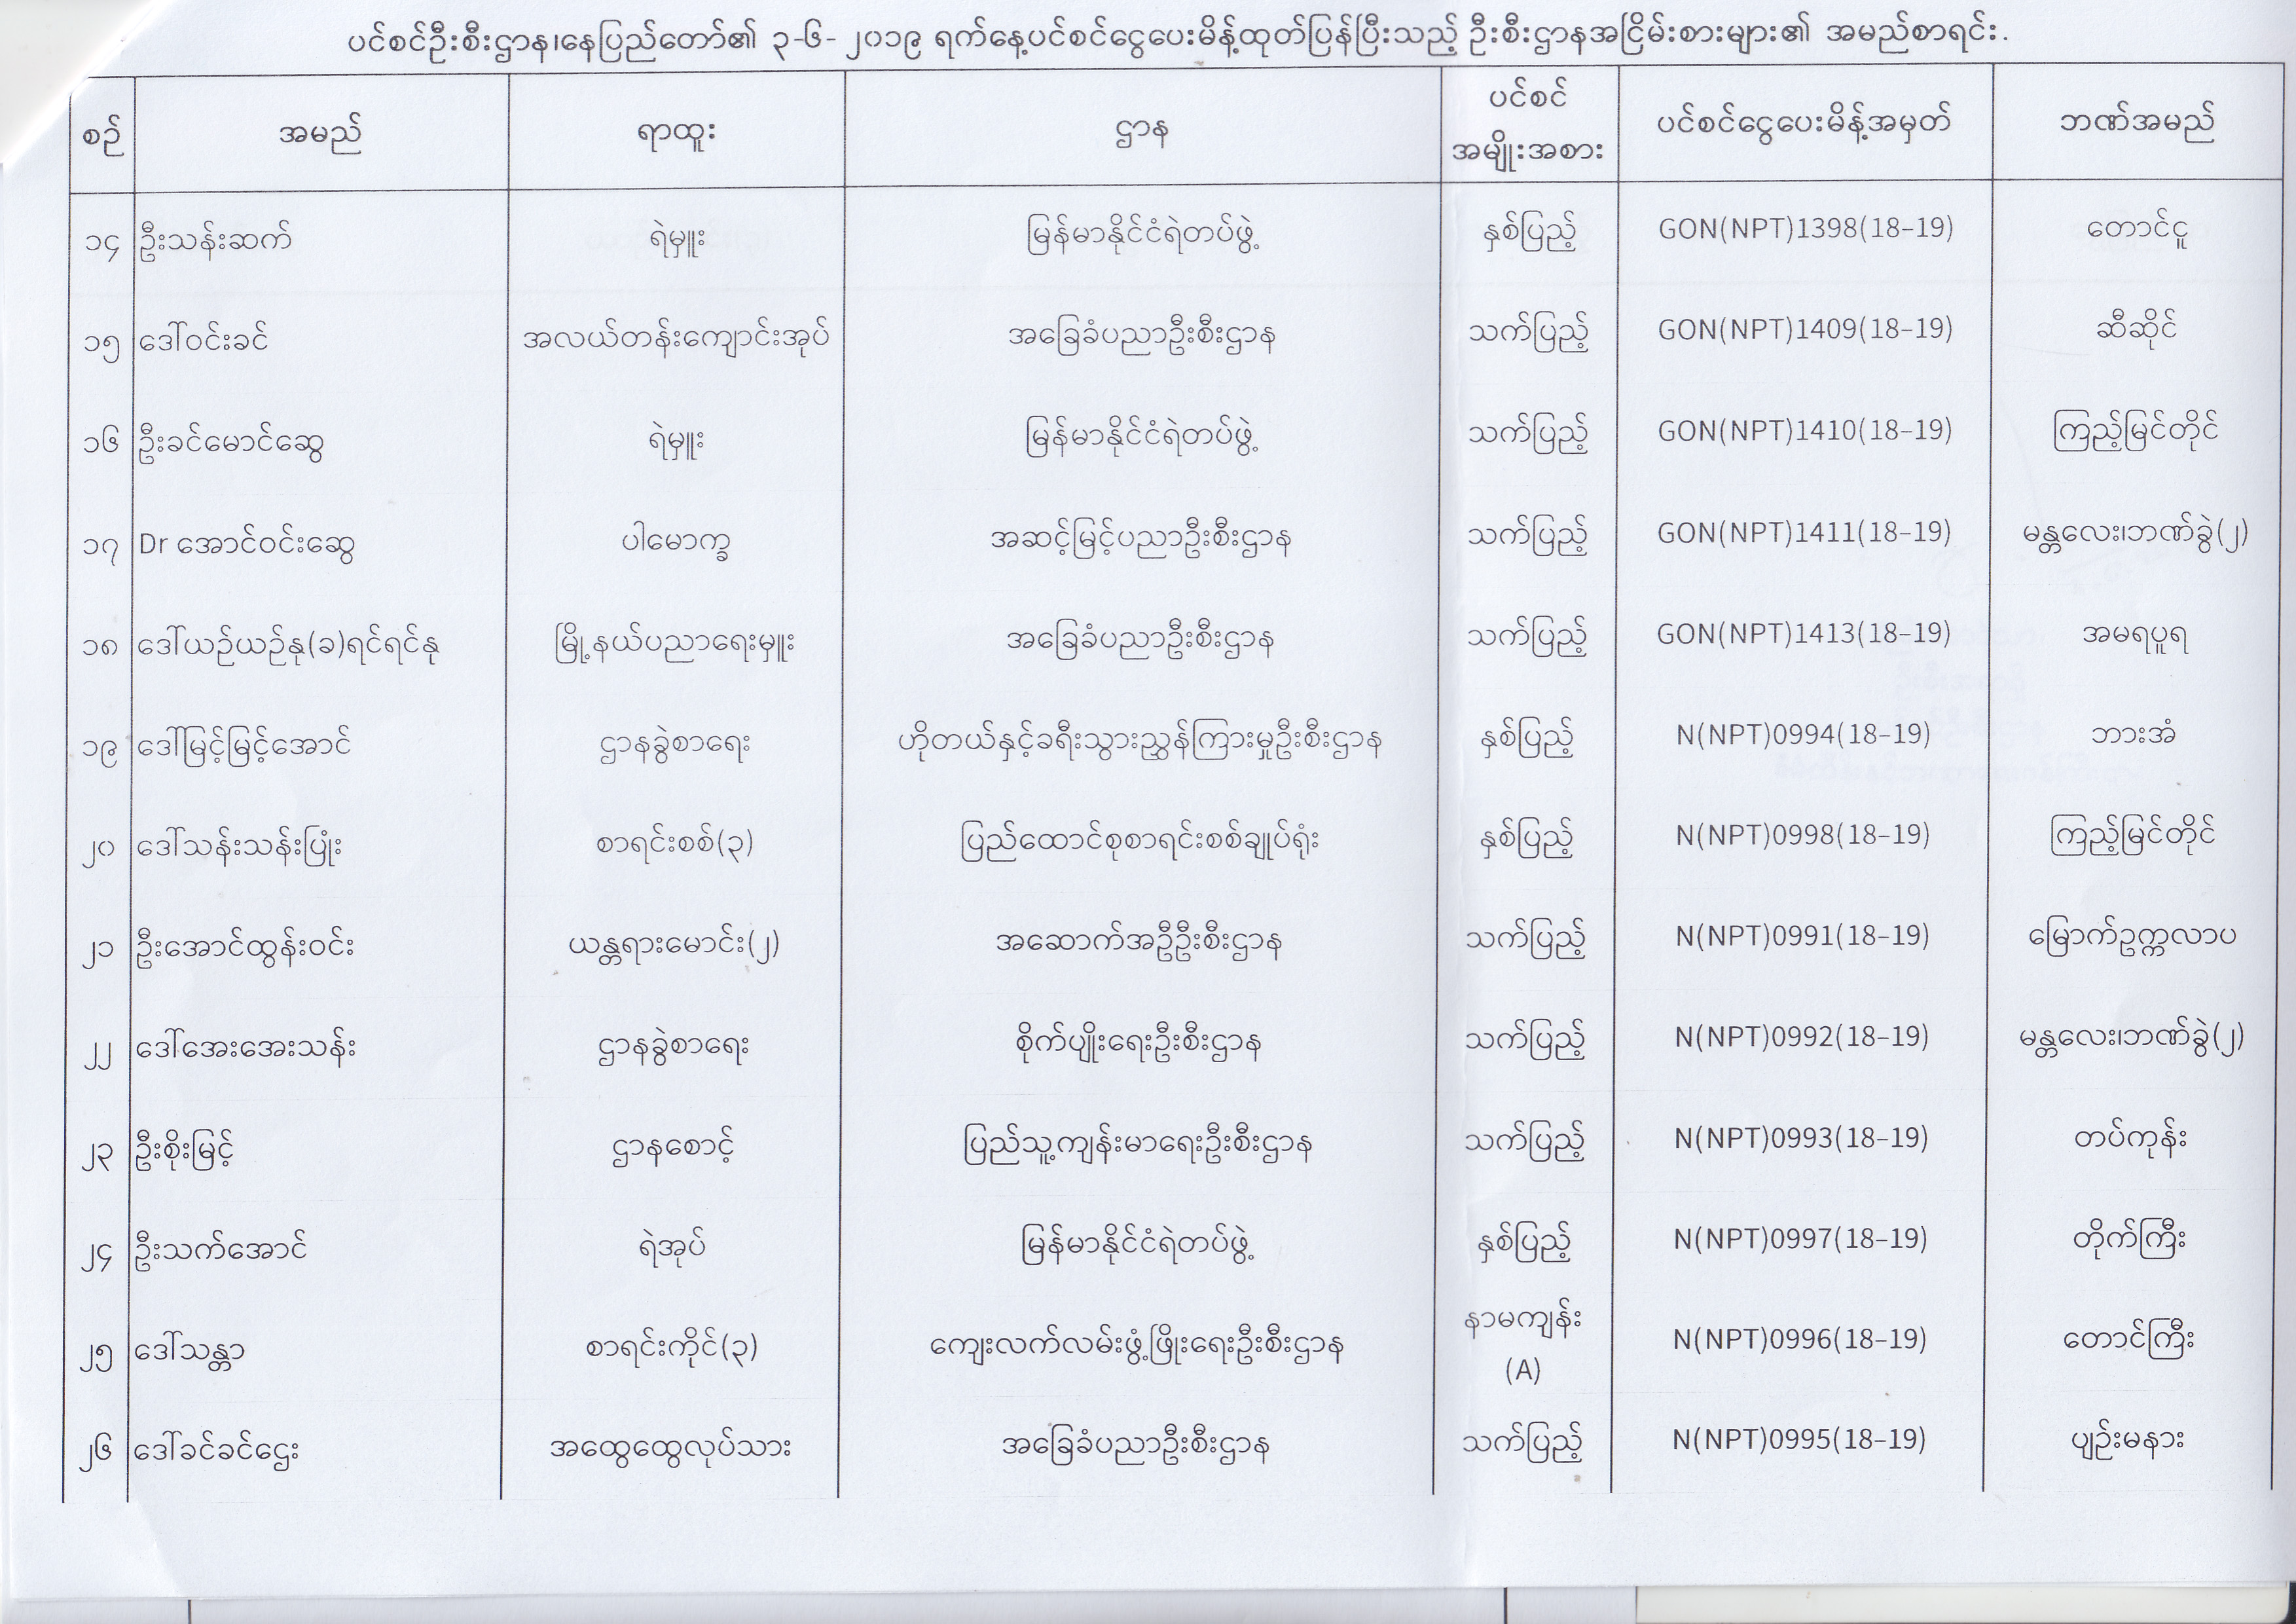 ပင်စင်ဦးစီးဌာန၊နေပြည်တော်၏ ၃-၆- ၂၀၁၉ ရက်နေ့ပင်စင်ငွေပေးမိန့်ထုတ်ပြန်ပြီးသည့် ဦးစီးဌာနအငြိမ်းစားများ၏ အမည်စာရင်း.
စဉ် အမည် ရာထူး ဌာန ပင်စင် အမျိုးအစား ပင်စင်ငွေပေးမိန့်အမှတ် ဘဏ်အမည်
၁၄ ဦးသန်းဆက် ရဲမှူး မြန်မာနိုင်ငံရဲတပ်ဖွဲ့ နှစ်ပြည့် GON(NPT)1398(18-19) တောင်ငူ
၁၅ ဒေါ်ဝင်းခင် အလယ်တန်းကျောင်းအုပ် အခြေခံပညာဦးစီးဌာန သက်ပြည့် GON(NPT)1409(18-19) ဆီဆိုင်
၁၆ ဦးခင်မောင်ဆွေ ရဲမှူး မြန်မာနိုင်ငံရဲတပ်ဖွဲ့ သက်ပြည့် GON(NPT)1410(18-19) ကြည့်မြင်တိုင်
၁၇ Dr အောင်ဝင်းဆွေ ပါမောက္ခ အဆင့်မြင့်ပညာဦးစီးဌာန သက်ပြည့် GON(NPT)1411(18-19) မန္တလေး၊ဘဏ်ခွဲ(၂)
၁၈ ဒေါ်ယဉ်ယဉ်နု(ခ)ရင်ရင်နု မြို့နယ်ပညာရေးမှူး အခြေခံပညာဦးစီးဌာန သက်ပြည့် GON(NPT)1413(18-19) အမရပူရ
၁၉ ဒေါ်မြင့်မြင့်အောင် ဌာနခွဲစာရေး ဟိုတယ်နှင့်ခရီးသွားညွှန်ကြားမှုဦးစီးဌာန နှစ်ပြည့် N(NPT)0994(18-19) ဘားအံ
၂၀ ဒေါ်သန်းသန်းပြုံး စာရင်းစစ်(၃) ပြည်ထောင်စုစာရင်းစစ်ချုပ်ရုံး နှစ်ပြည့် N(NPT)0998(18-19) ကြည့်မြင်တိုင်
၂၁ ဦးအောင်ထွန်းဝင်း ယန္တရားမောင်း(၂) အဆောက်အဦဦးစီးဌာန သက်ပြည့် N(NPT)0991(18-19) မြောက်ဥက္ကလာပ
၂၂ ဒေါ်အေးအေးသန်း ဌာနခွဲစာရေး စိုက်ပျိုးရေးဦးစီးဌာန သက်ပြည့် N(NPT)0992(18-19) မန္တလေး၊ဘဏ်ခွဲ(၂)
၂၃ ဦးစိုးမြင့် ဌာနစောင့် ပြည်သူ့ကျန်းမာရေးဦးစီးဌာန သက်ပြည့် N(NPT)0993(18-19) တပ်ကုန်း
၂၄ ဦးသက်အောင် ရဲအုပ် မြန်မာနိုင်ငံရဲတပ်ဖွဲ့ နှစ်ပြည့် N(NPT)0997(18-19) တိုက်ကြီး
၂၅ ဒေါ်သန္တာ စာရင်းကိုင်(၃) ကျေးလက်လမ်းဖွံ့ဖြိုးရေးဦးစီးဌာန နာမကျန်း (A) N(NPT)0996(18-19) တောင်ကြီး
၂၆ ဒေါ်ခင်ခင်ဌေး အထွေထွေလုပ်သား အခြေခံပညာဦးစီးဌာန သက်ပြည့် N(NPT)0995(18-19) ပျဉ်းမနား